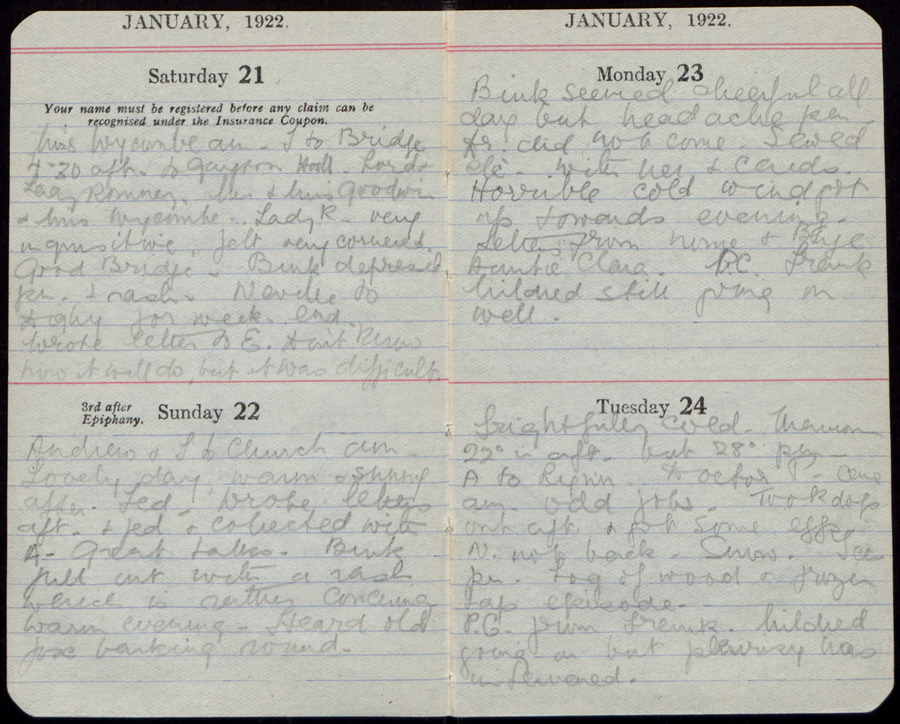 JANUARY, 1922.
Saturday 21
Your name must be registered before any claim can be
recognised under the Insurance Coupon.
Miss Wycombe am. I to Bridge
4-30 aft. to Gayton Hall. Lord &
Lady Romney. Mr. & Miss Goodwin
& Miss Wycombe. Lady R. very
inquisitive, felt very cornered.
Good Bridge. Bink depressed
pm. & rash. Neville to
for week end.
Wrote letter to E. don't know
how it will do, but it was difficult.
3rd after
Epiphany.
Sunday 22
Andrew & I to Church am.
Lovely day, warm & sunny
after. Fed. Wrote letters
aft. & fed & collected with
A- Great talks. Bink
still out with a rash
which is rather
warm evening - Heard old
fox barking round.
JANUARY, 1922.
Monday 23
Bink seemed cheerful all
day but headache pm.
Dr. did not come. Sewed
etc. with her & cards.
Horrible cold wind got
up towards evening.
Letter from home &
Auntie Clara. P.C. Frank
Mildred still going on
well.
Tuesday 24
Frightfully cold. Thermom
22° in aft. but 28° pm.
A to Lynn. Doctor came
am. odd jobs. Took dogs
out aft. & got some eggs.
N. not back. Snow. Ice
pm. Log of wood & frozen
tap episode.
P.C. from Frank. Mildred
going on but pleurisy has